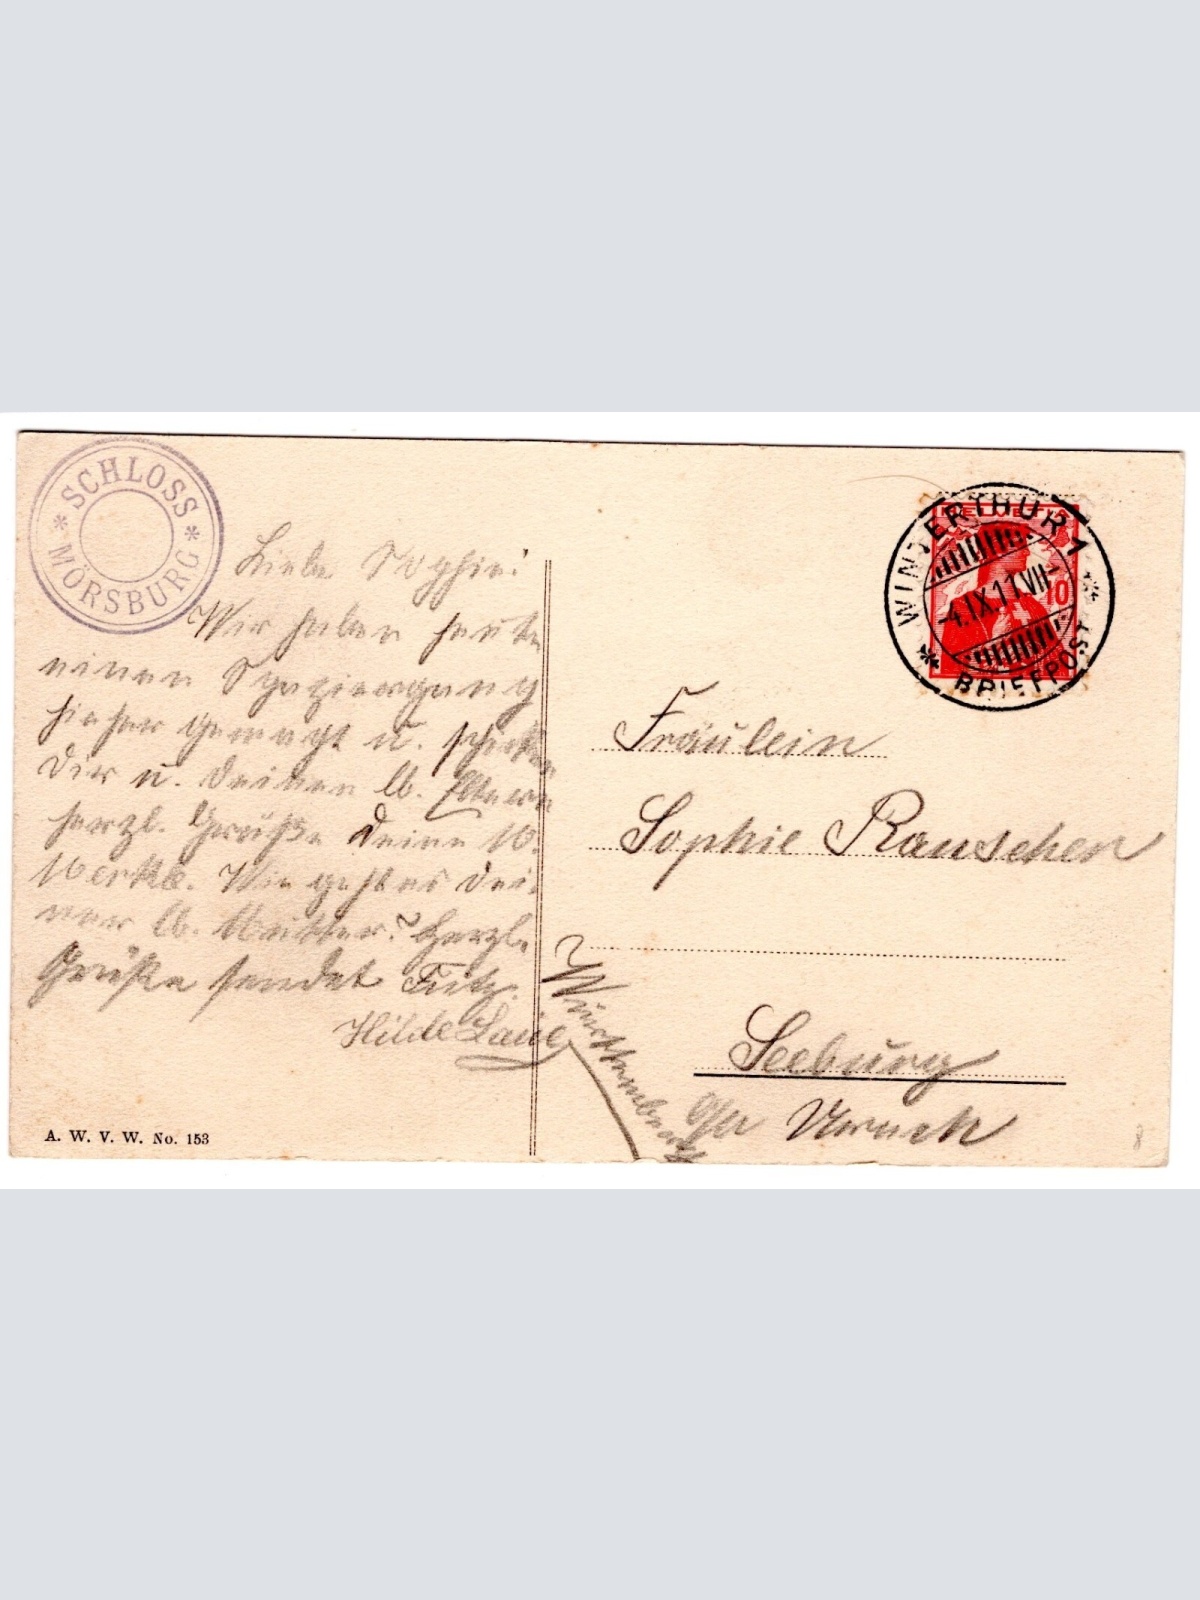 SCHLOSS
* MÖRSBURG *
Liebe Sophie!
Wir haben heute
einen Spaziergang
hieher gemacht u. schicken
Dir u. deinen lb. Eltern
herzl. Grüße Deine
Wie geht es Dei-
ner lb. Mutter? Herzl.
Grüße sendet Fritz.
Hilde
A. W. V. W. No. 153
HELVETIA
10
WINTERTHUR 1
-4.IX.11.VII-
* BRIEFPOST *
Fräulein
Sophie Rauscher
Seeburg
Urach
Württemberg
8